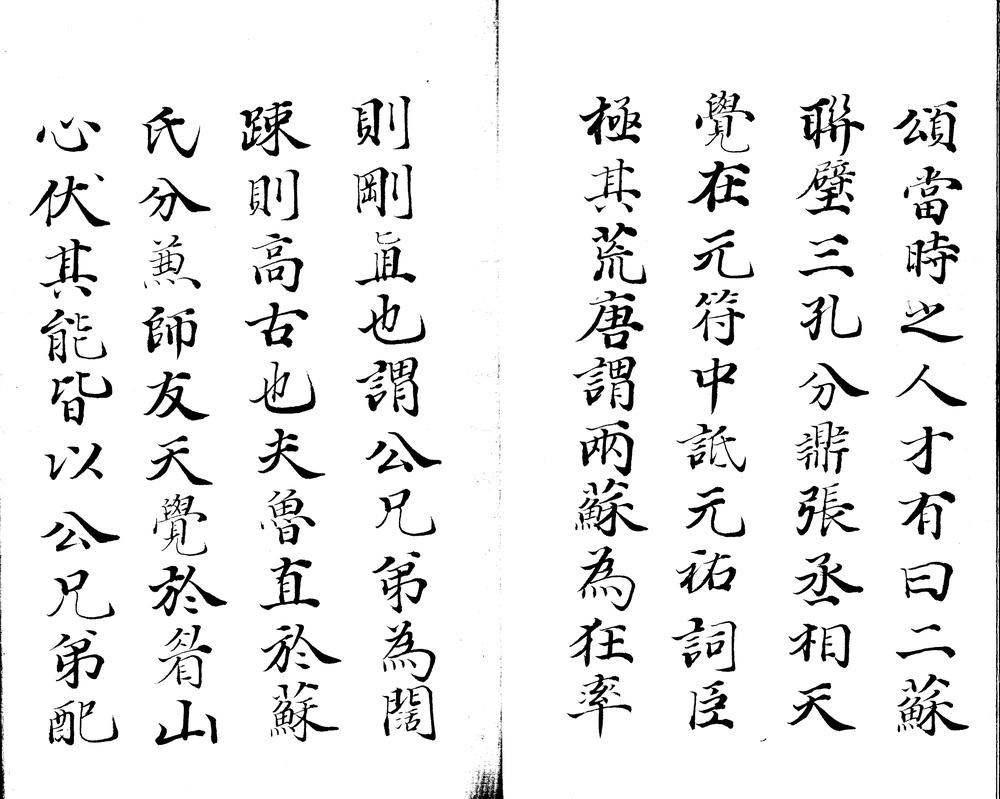 頌當時之人才有曰二蘇
聯璧三孔分鼎張丞相天
覺在元符中詆元祐詞臣
極其荒唐謂兩蘇為狂率
則剛直也謂公兄弟為闊
踈則高古也夫魯直於蘇
氏分兼師友天覺於眉山
心伏其能皆以公兄弟配